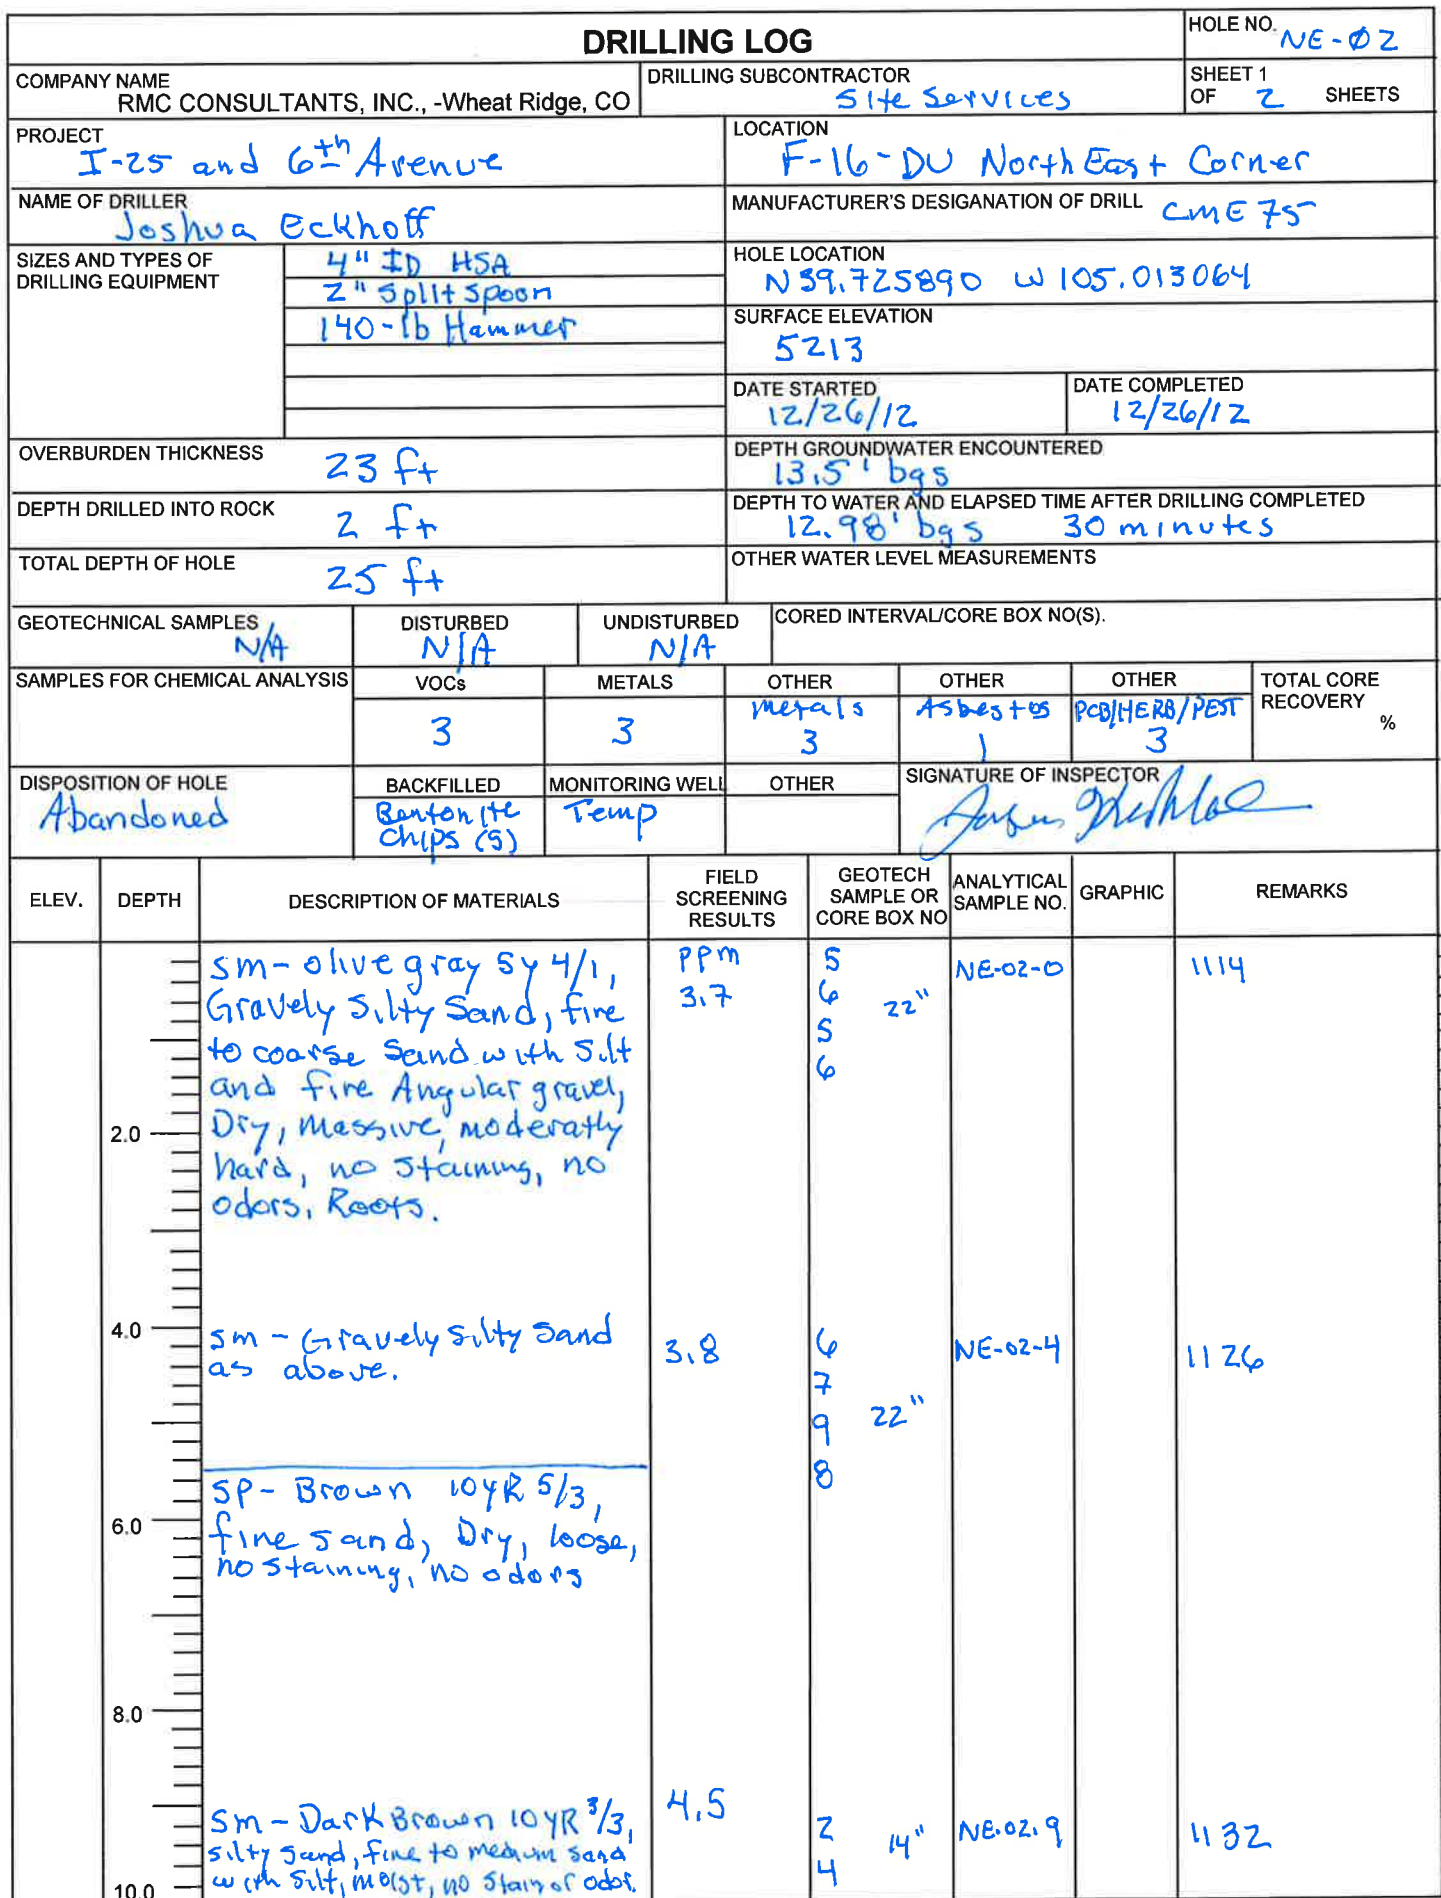 DRILLING LOG
HOLE NO. NE-Ø2
COMPANY NAME
RMC CONSULTANTS, INC., -Wheat Ridge, CO
DRILLING SUBCONTRACTOR
Site Services
SHEET 1
OF 2 SHEETS
PROJECT
I-25 and 6th Avenue
LOCATION
F-16-DU NorthEast Corner
NAME OF DRILLER
Joshua Eckhoff
MANUFACTURER'S DESIGANATION OF DRILL CME 75
SIZES AND TYPES OF
DRILLING EQUIPMENT
4" ID HSA
2" Split Spoon
140-lb Hammer
HOLE LOCATION
N 39.725890 W 105.013064
SURFACE ELEVATION
5213
DATE STARTED
12/26/12
DATE COMPLETED
12/26/12
OVERBURDEN THICKNESS 23 ft
DEPTH GROUNDWATER ENCOUNTERED
13.5' bgs
DEPTH DRILLED INTO ROCK 2 ft
DEPTH TO WATER AND ELAPSED TIME AFTER DRILLING COMPLETED
12.98' bgs 30 minutes
TOTAL DEPTH OF HOLE 25 ft
OTHER WATER LEVEL MEASUREMENTS
GEOTECHNICAL SAMPLES
N/A
DISTURBED
N/A
UNDISTURBED
N/A
CORED INTERVAL/CORE BOX NO(S).
SAMPLES FOR CHEMICAL ANALYSIS
VOCs
3
METALS
3
OTHER
metals
3
OTHER
Asbestos
1
OTHER
PCB/HERB/PEST
3
TOTAL CORE
RECOVERY
%
DISPOSITION OF HOLE
Abandoned
BACKFILLED
Bentonite
Chips (5)
MONITORING WELL
Temp
OTHER
SIGNATURE OF INSPECTOR
ELEV.
DEPTH
DESCRIPTION OF MATERIALS
FIELD
SCREENING
RESULTS
GEOTECH
SAMPLE OR
CORE BOX NO
ANALYTICAL
SAMPLE NO.
GRAPHIC
REMARKS
SM - olive gray 5Y 4/1,
Gravely Silty Sand, fine
to coarse Sand with Silt
and fine Angular gravel,
Dry, Massive, moderatly
hard, no staining, no
odors, Roots.
ppm
3.7
5
6
5
6
22"
NE-02-0
1114
2.0
4.0
SM - Gravely Silty Sand
as above.
3.8
6
7
9
8
22"
NE-02-4
1126
SP - Brown 10YR 5/3,
fine sand, Dry, loose,
no staining, no odors
6.0
8.0
SM - Dark Brown 10YR 3/3,
silty sand, fine to medium sand
with Silt, moist, no stain or odor.
4.5
2
4
14"
NE-02-9
1132
10.0